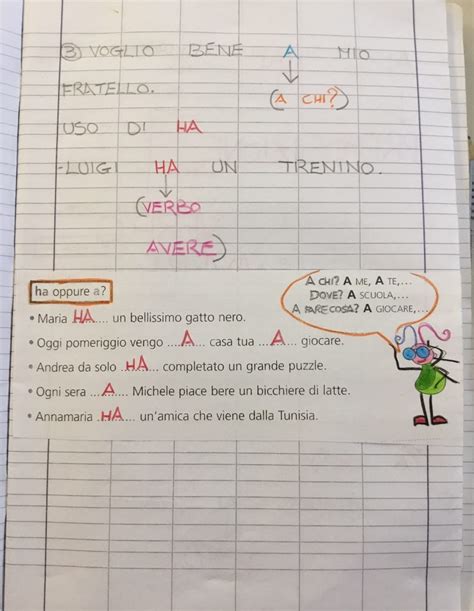 ③ VOGLIO BENE A MIO
FRATELLO. (A CHI?)
USO DI HA
-LUIGI HA UN TRENINO.
(VERBO
AVERE)
ha oppure a?
A CHI? A ME, A TE,...
DOVE? A SCUOLA,...
A FARE COSA? A GIOCARE,...
• Maria HA.... un bellissimo gatto nero.
• Oggi pomeriggio vengo ...A.... casa tua ...A... giocare.
• Andrea da solo .HA.... completato un grande puzzle.
• Ogni sera ...A.... Michele piace bere un bicchiere di latte.
• Annamaria .HA.... un'amica che viene dalla Tunisia.